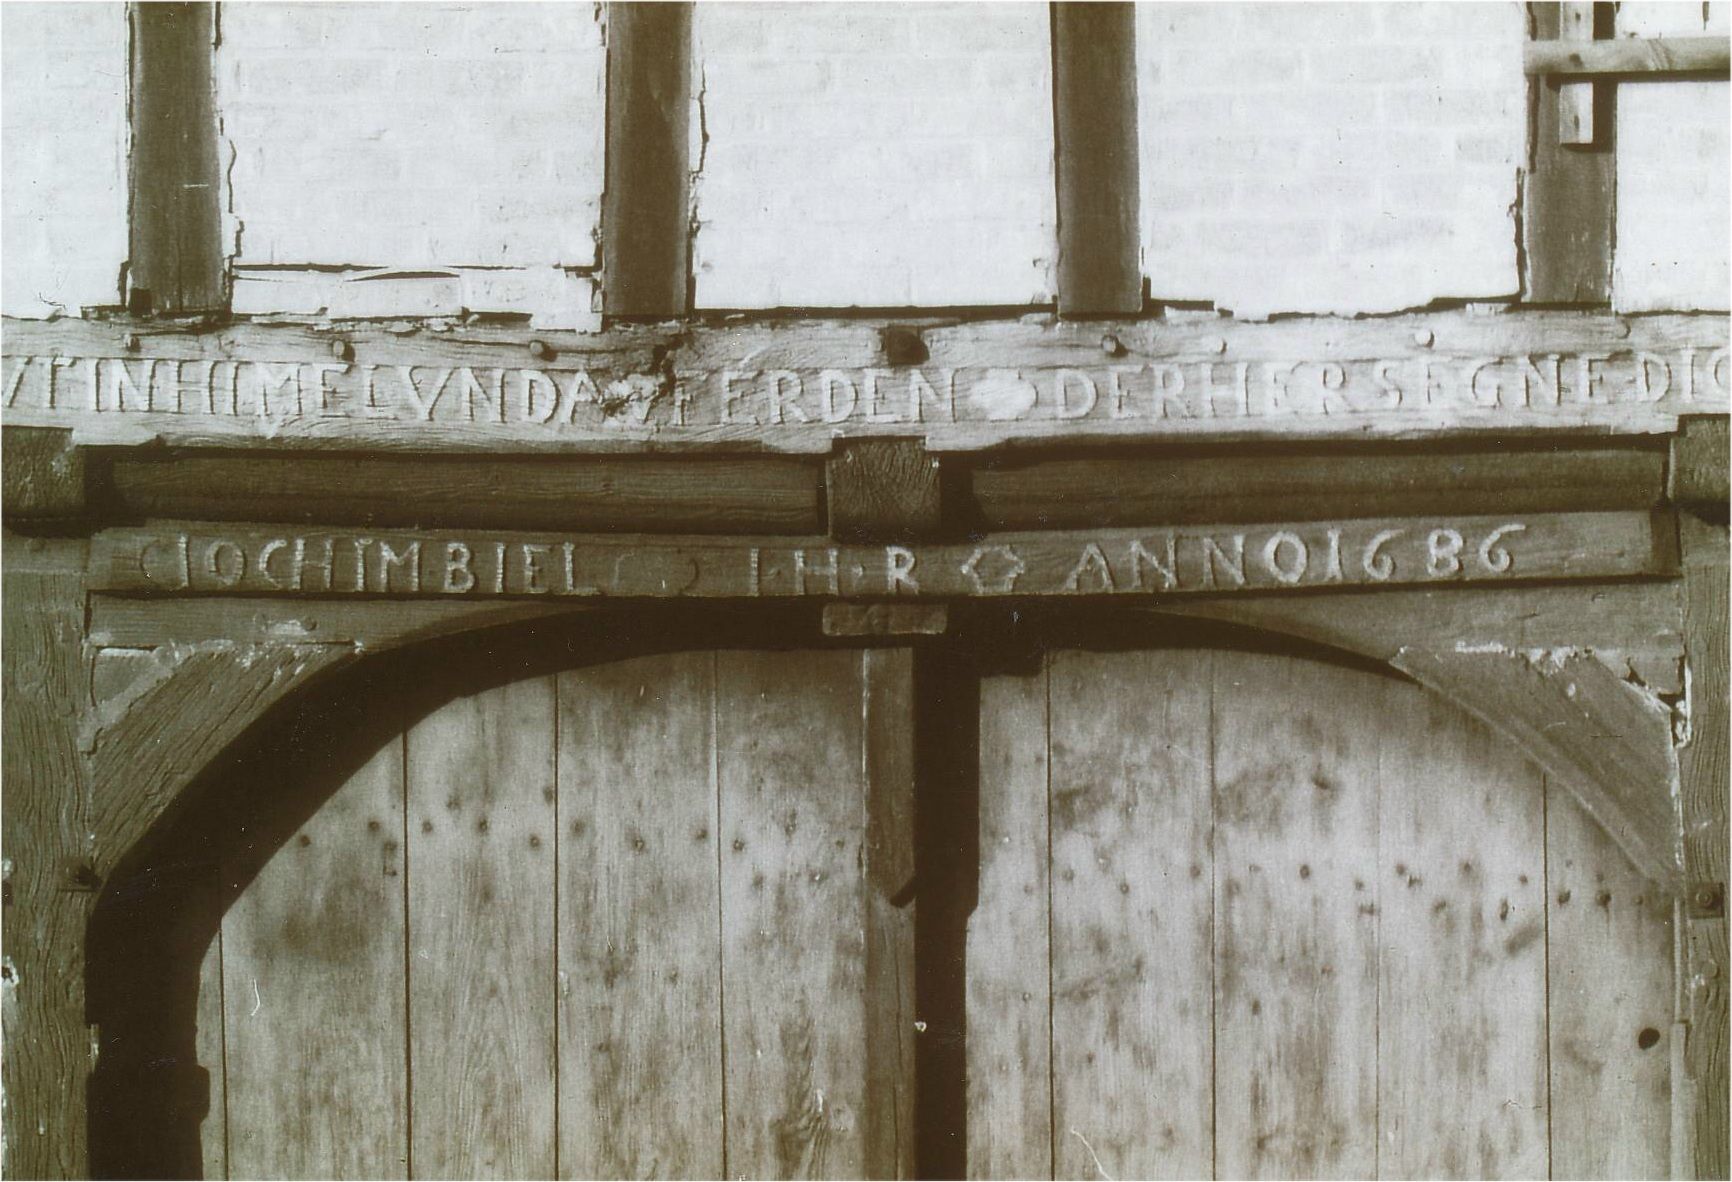 VT IN HIMEL VND AVF ERDEN DER HER SEGNE DIC
IOCHIM BIEL I·H·R ANNO 1686